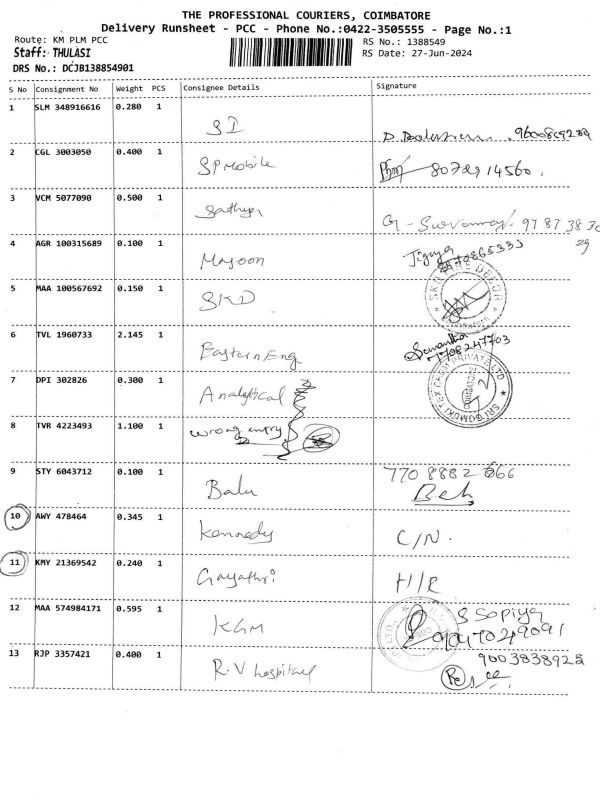 THE PROFESSIONAL COURIERS, COIMBATORE
Delivery Runsheet - PCC - Phone No.:0422-3505555 - Page No.:1
Route: KM PLM PCC RS No.: 1388549
Staff: THULASI RS Date: 27-Jun-2024
DRS No.: DCJB138854901
S No Consignment No Weight PCS Consignee Details Signature
1 SLM 348916616 0.280 1 SI
2 CGL 3003050 0.400 1 SP Mobile 8072914560.
3 VCM 5077090 0.500 1 Sathya G - 97 87 38 30
29
4 AGR 100315689 0.100 1 Magoon
5 MAA 100567692 0.150 1 SKD
6 TVL 1960733 2.145 1 Eastern Eng Sumantha
7708247703
7 DPI 302826 0.300 1 Analytical
8 TVR 4223493 1.100 1 wrong entry
9 STY 6043712 0.100 1 Balu 770 8882 666
10 AWY 478464 0.345 1 Kennedy C/N.
11 KMY 21369542 0.240 1 Gayathri H/R
12 MAA 574984171 0.595 1 KGM S Sopiya
13 RJP 3357421 0.400 1 R.V hospital 9003838925